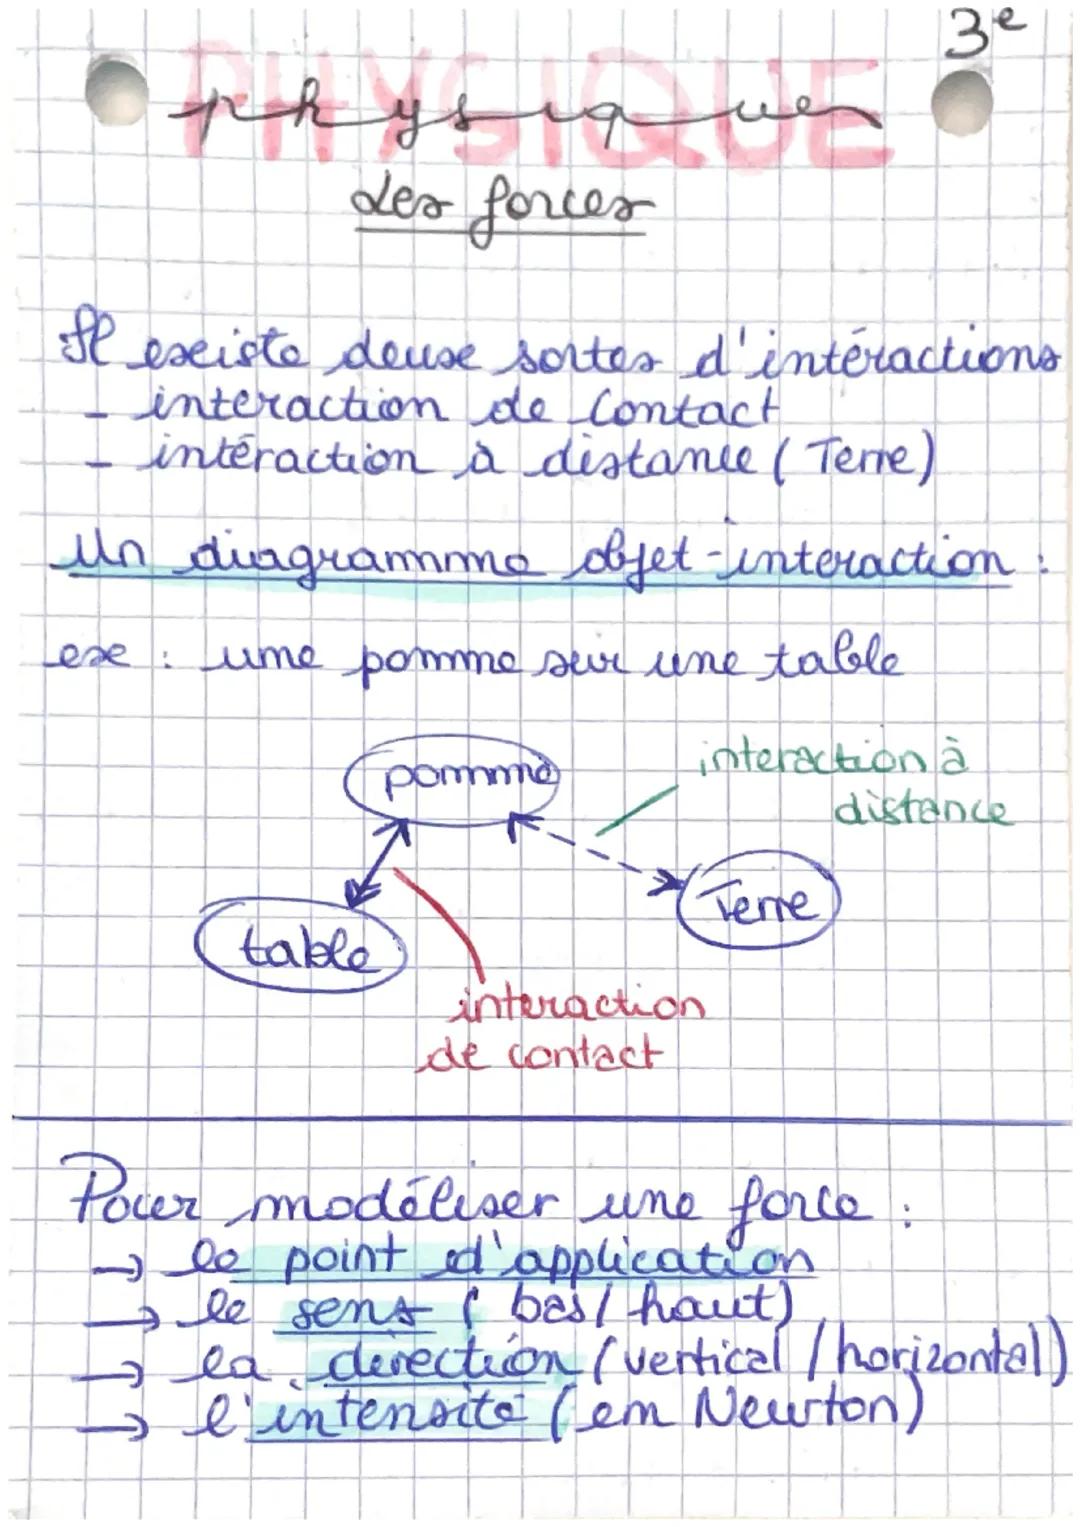 3e
PHYSIQUE
physique
Les forces
Il existe deux sortes d'intéractions
- interaction de contact
- intéraction à distance (Terre)
Un diagramme objet-interaction :
ex : une pomme sur une table
pomme
interaction à
distance
Terre
table
interaction
de contact
Pour modéliser une force :
→ le point d'application
→ le sens (bas/haut)
→ la direction (vertical/horizontal)
→ l'intensité (en Newton)